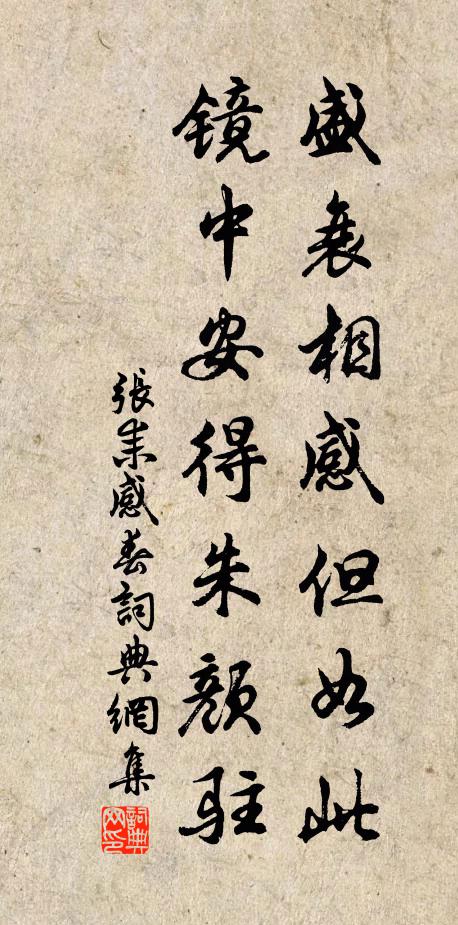 盛衰相感但如此
镜中安得朱颜驻
張耒感春詞典網集
詞典
网印